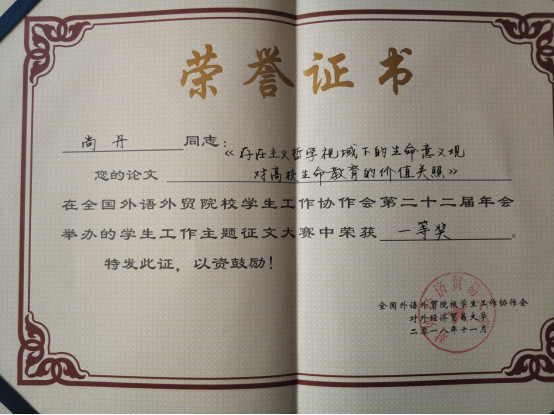 荣誉证书
尚丹 同志:
《存在主义哲学视域下的生命意义观
您的论文 对高校生命教育的价值关照》
在全国外语外贸院校学生工作协作会第二十二届年会
举办的学生工作主题征文大赛中荣获 一等奖 。
特发此证，以资鼓励！
全国外语外贸院校学生工作协作会
对外经济贸易大学
二零一八年十一月